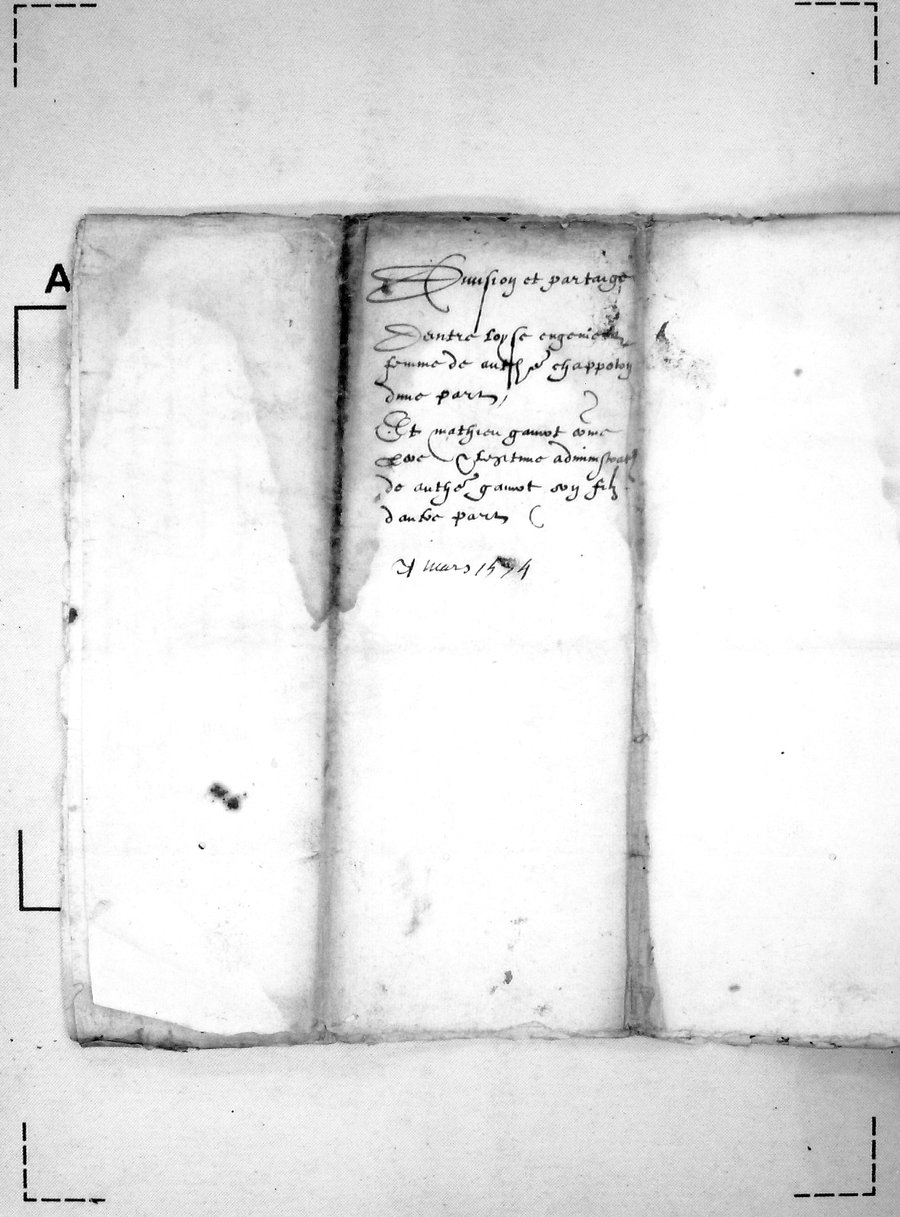 A
Division et partaige
Dentre loyse engeniere
femme de anthe chappoton
dune part,
Et mathieu gamot come
pere & legitime administrat
de anthe gamot son filz
dautre part
mars 1574